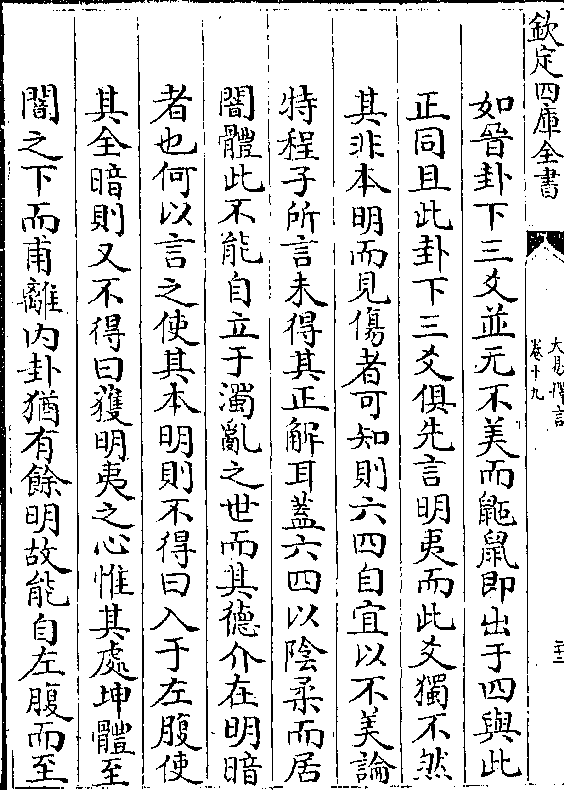 欽定四庫全書
大易擇言
卷十九
如晉卦下三爻並元不美而鼫鼠即出于四與此
正同且此卦下三爻俱先言明夷而此爻獨不然
其非本明而見傷者可知則六四自宜以不美論
特程子所言未得其正解耳蓋六四以陰柔而居
闇體此不能自立于濁亂之世而其德介在明暗
者也何以言之使其本明則不得曰入于左腹使
其全暗則又不得曰獲明夷之心惟其處坤體至
闇之下而甫離内卦猶有餘明故能自左腹而至